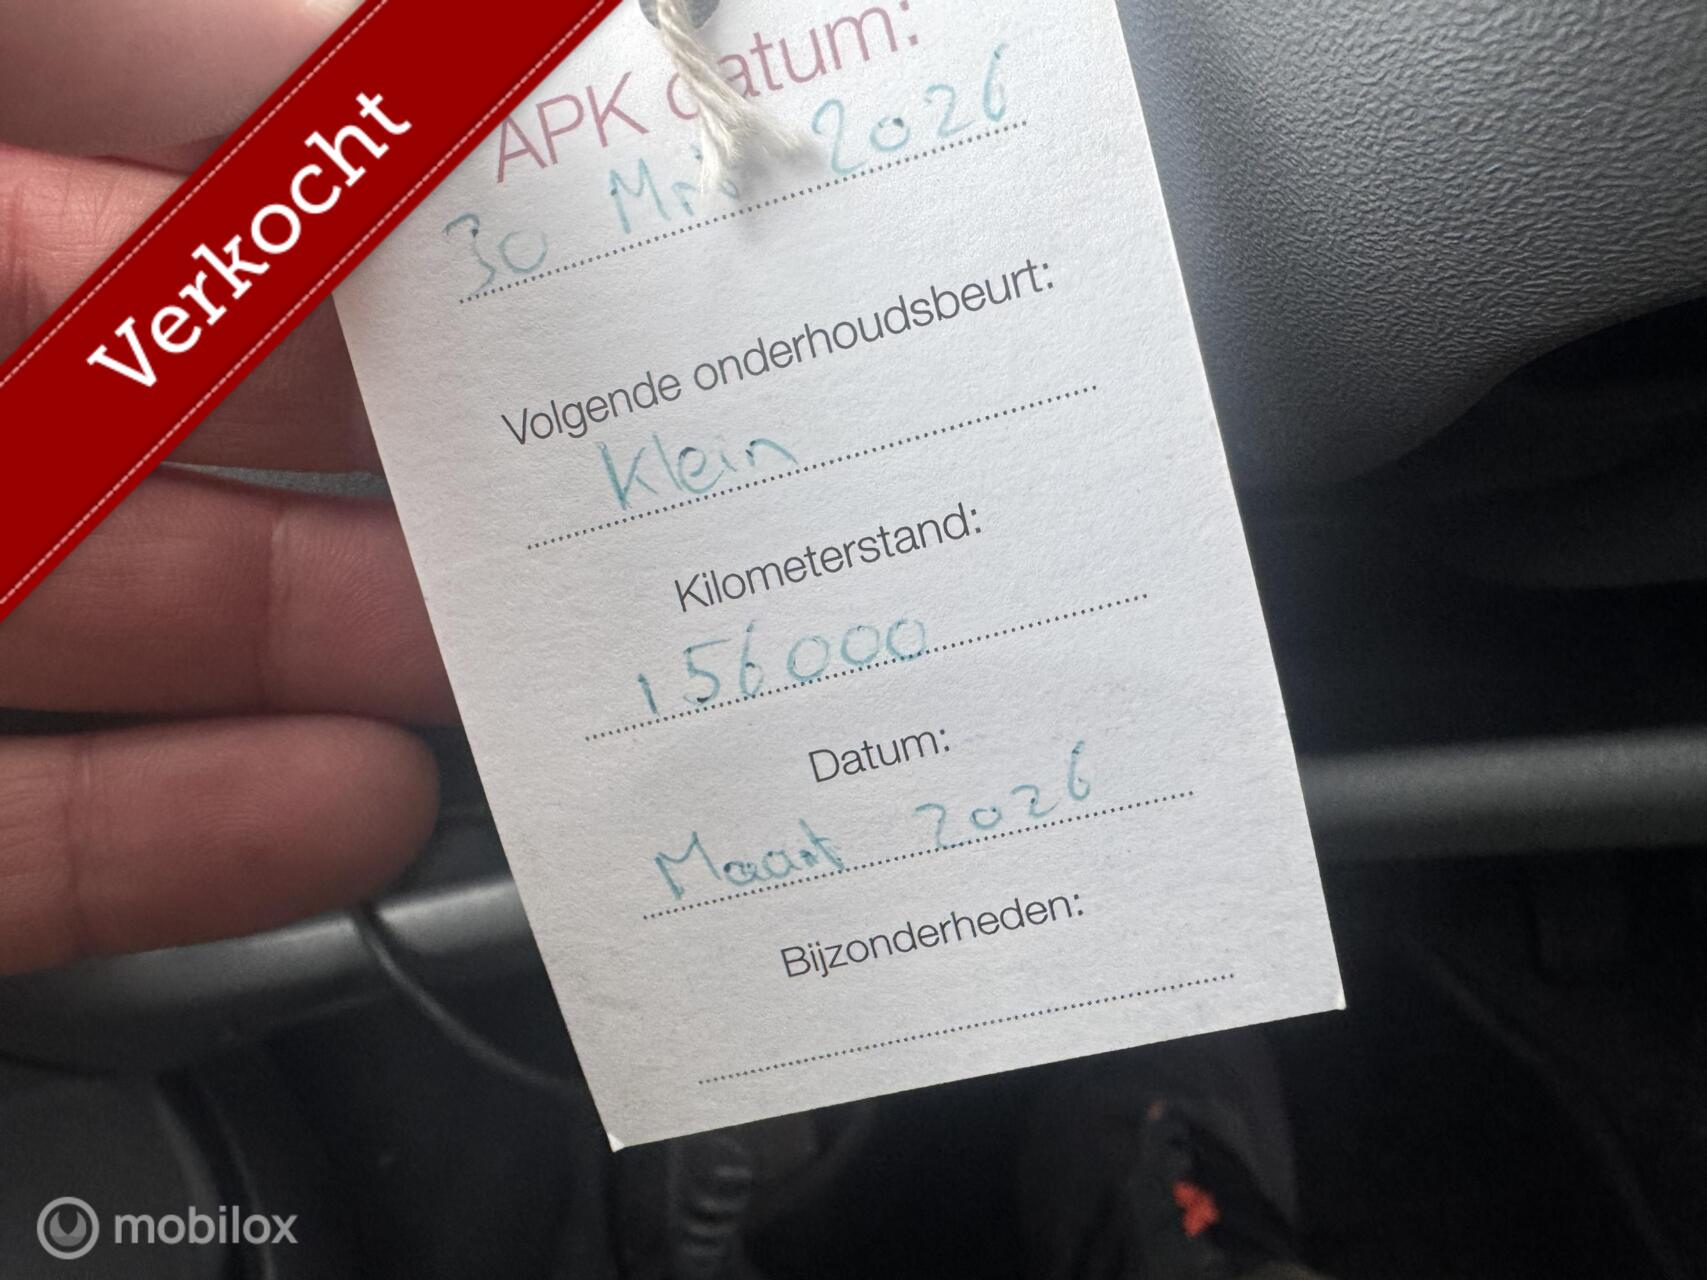 Verkocht
APK datum:
30 Mrt 2026
Volgende onderhoudsbeurt:
Klein
Kilometerstand:
156000
Datum:
Maart 2026
Bijzonderheden:
mobilox